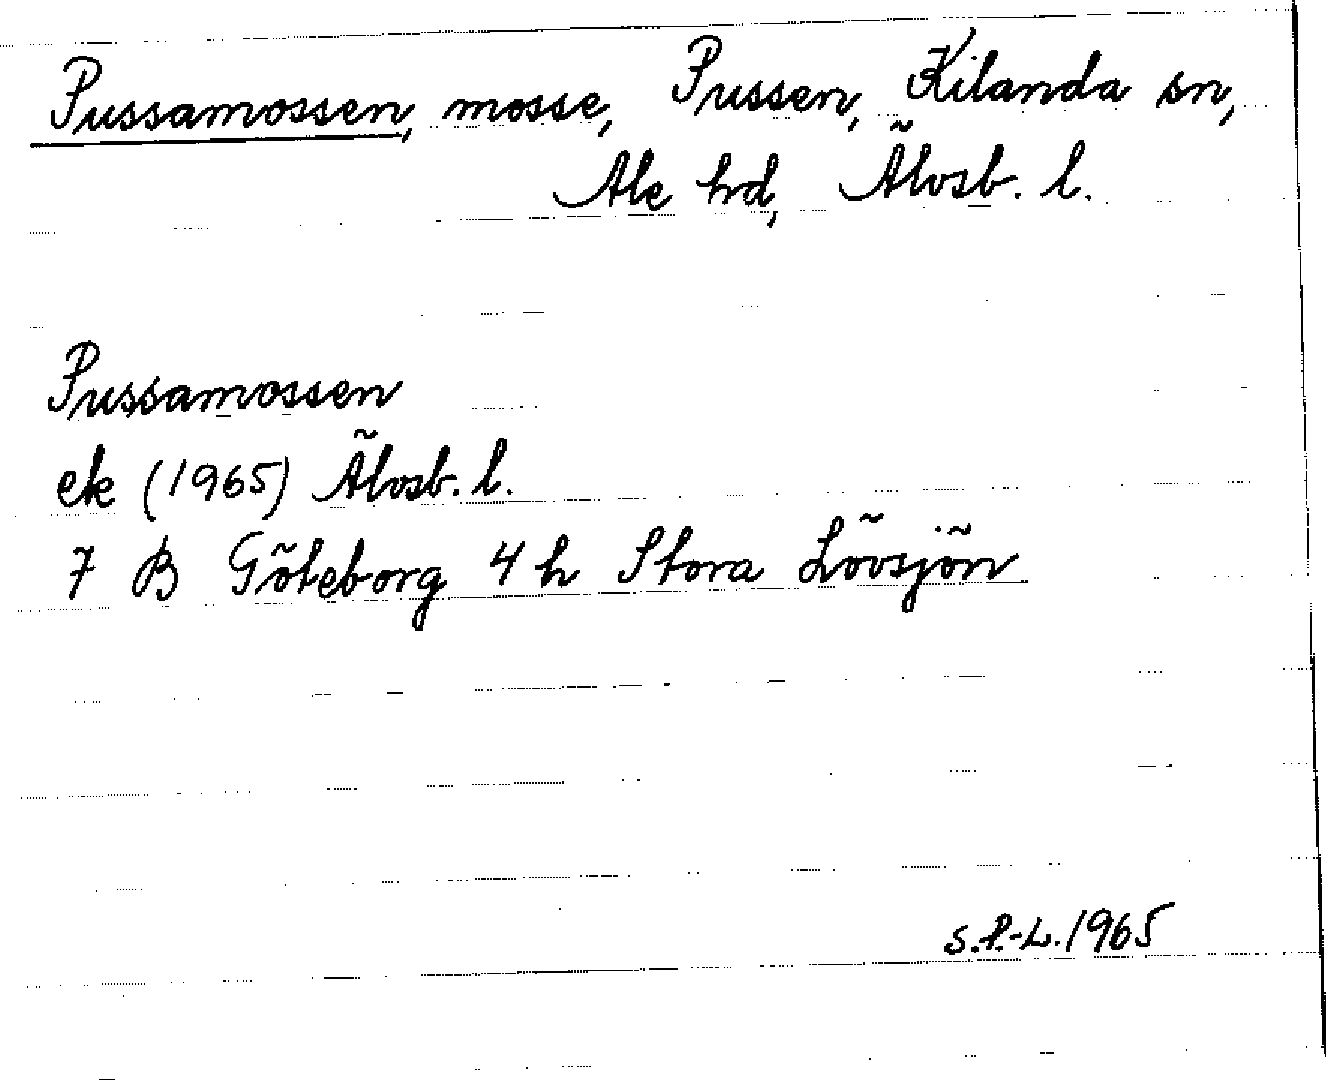 Pussamossen, mosse, Pussen, Kilanda sn,
Ale hd, Älvsb. l.
Pussamossen
ek (1965) Älvsb. l.
7 B Göteborg 4 h Stora Lövsjön
S.P.-L. 1965